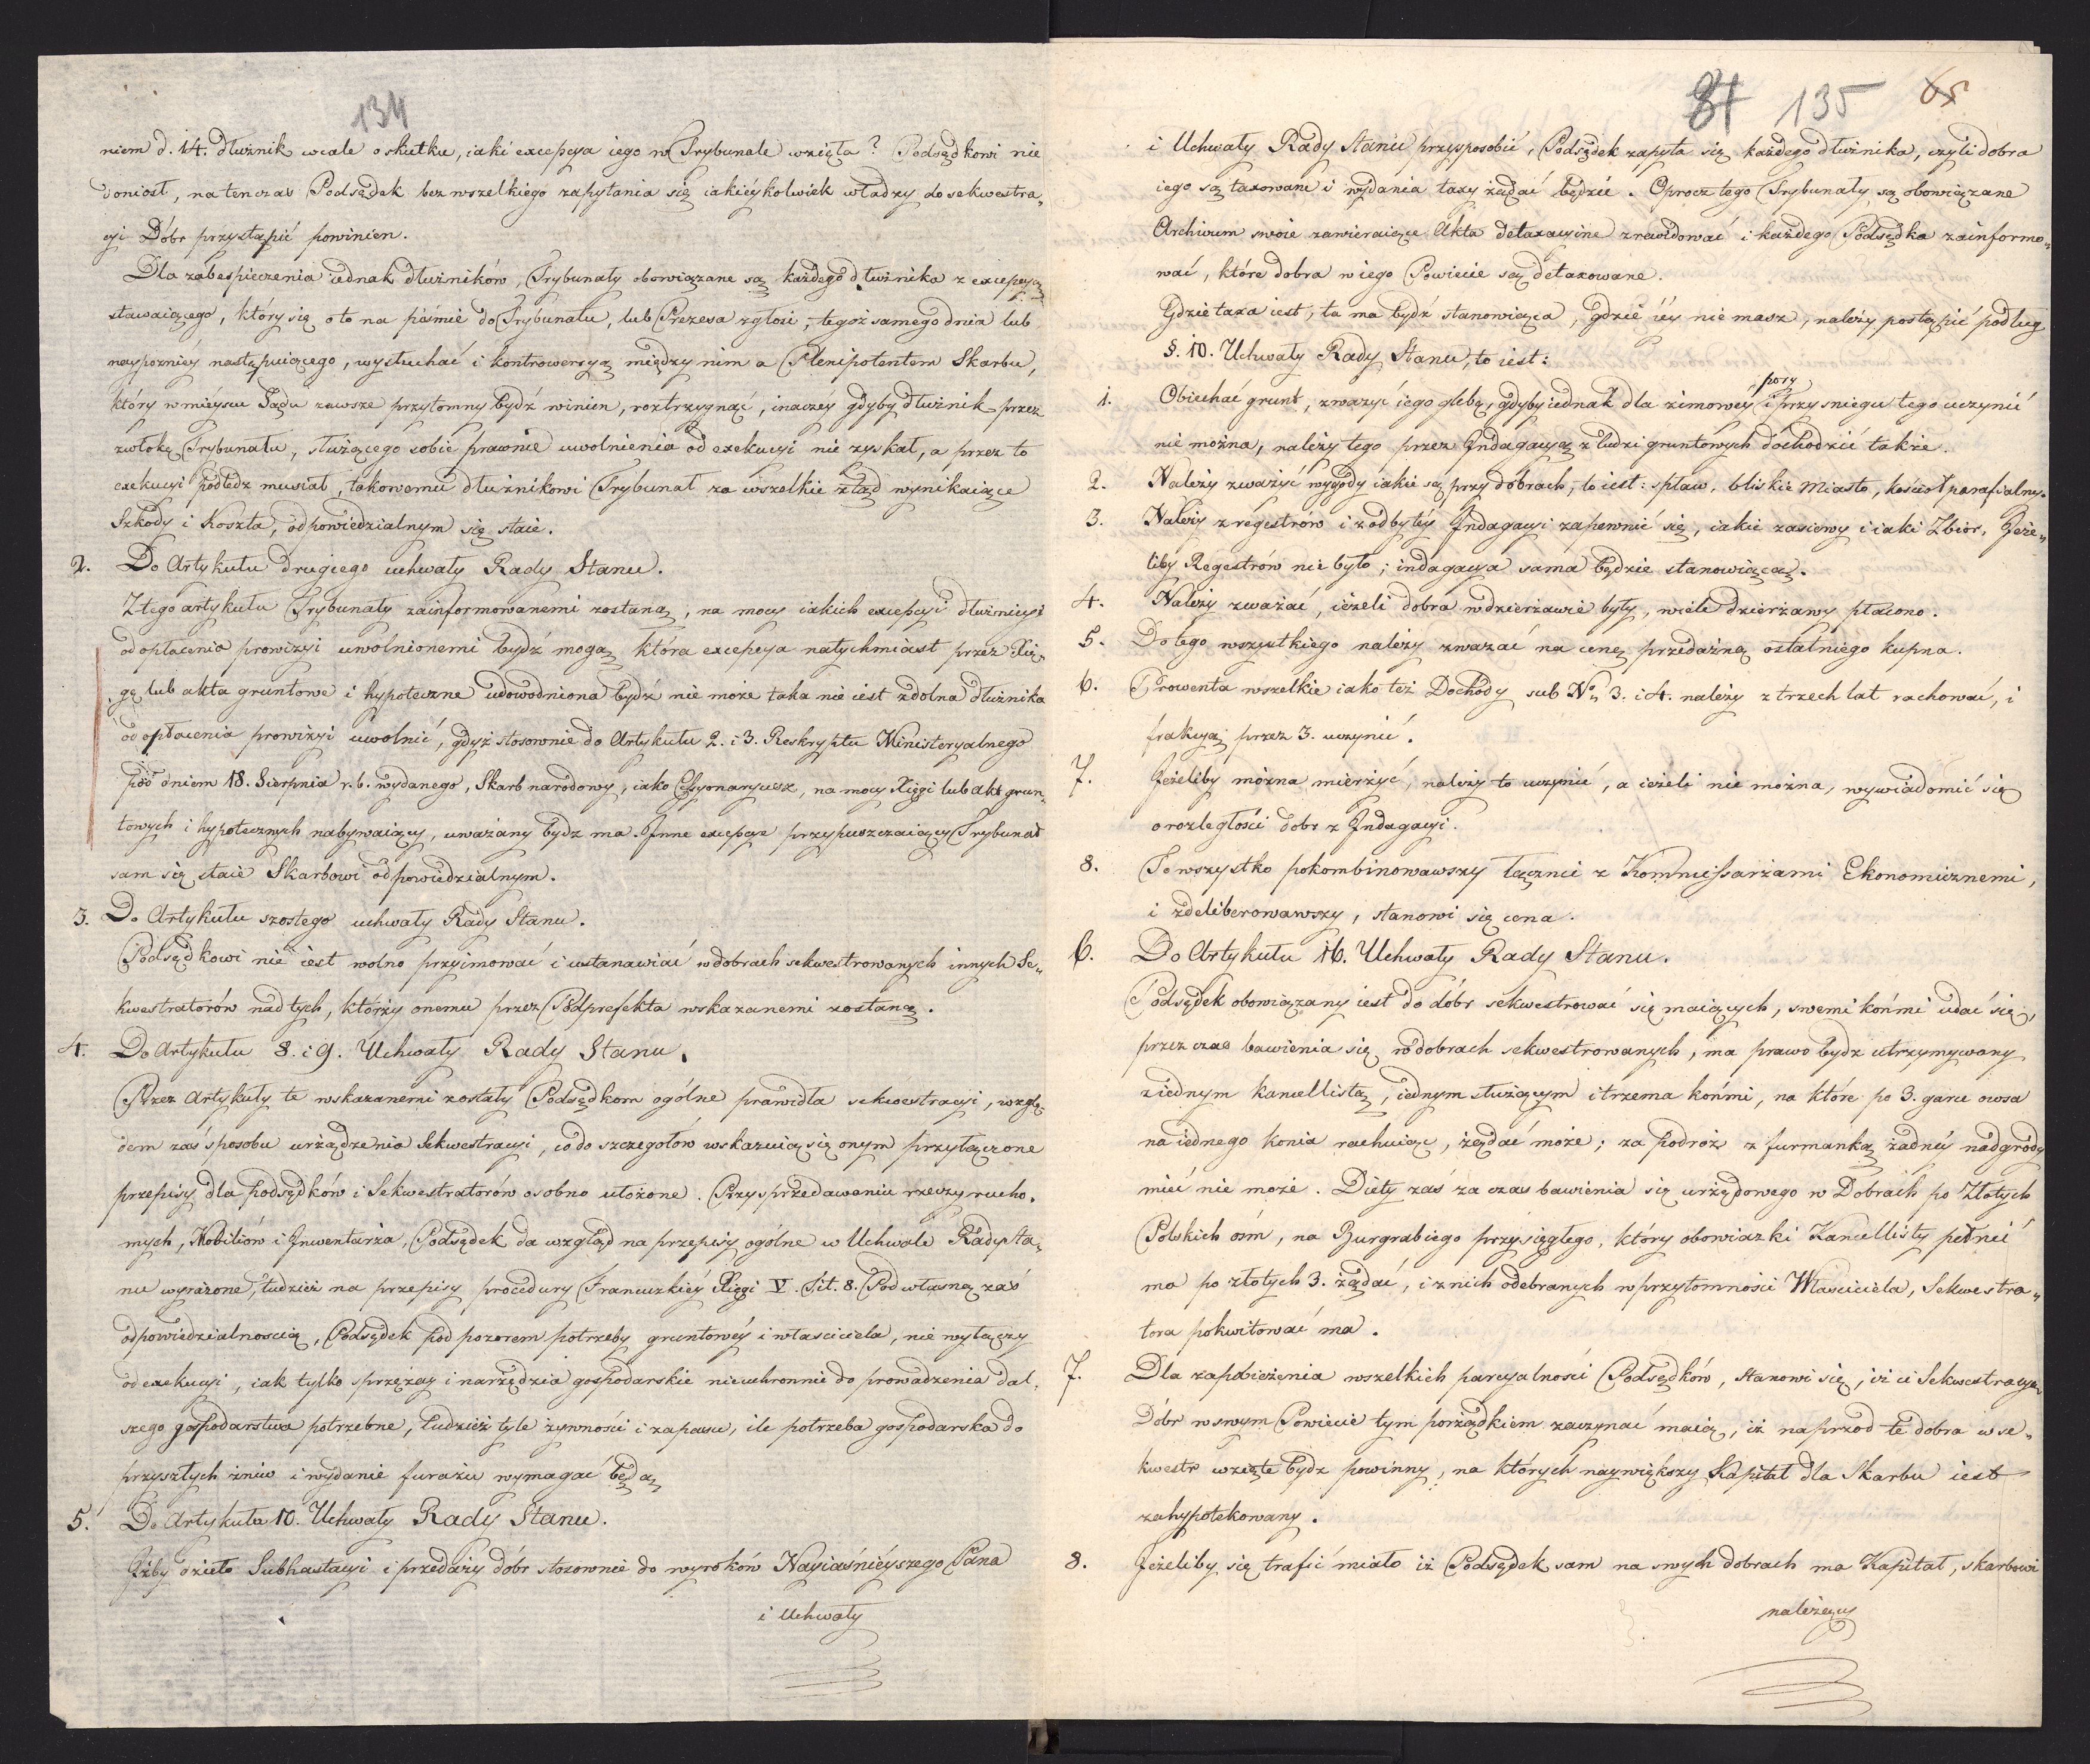 134
niem d. 14. dłużnik wcale o skutku, iaki excepcya iego w Trybunale wzięła? Podsędkowi nie
doniosł, na tenczas Podsędek bez wszelkiego zapytania się iakieykolwiek władzy do sekwestra„
cyi Dóbr przystąpić powinien.
Dla zabespieczenia iednak dłużników, Trybunały obowiązane są każdego dłużnika z excepcyą
stawaiącego, który się o to na piśmie do Trybunału, lub Prezesa zgłosi, tegoż samego dnia lub
naypozniey następuiącego, wysłuchać i kontrowersyą między nim a Plenipotentem Skarbu,
który w mieyscu Sądu zawsze przytomny bydź winien, roztrzygnąć, inaczey gdyby dłużnik przez
zwłokę Trybunału, służącego sobie prawnie uwolnienia od exekucyi nie zyskał, a przez to
exekucyi podledz musiał, takowemu dłużnikowi Trybunał za wszelkie ztąd wynikaiące
Szkody i Koszta, odpowiedzialnym się staie.
2. Do Artykułu drugiego uchwały Rady Stanu.
Z tego artykułu Trybunały zainformowanemi zostaną, na mocy iakich excepcyi dłużnicy
od opłacenia prowizyi uwolnionemi bydź mogą, która excepcya natychmiast przez Xię„
gę lub akta gruntowe i hypoteczne udowodniona bydź nie może taka nie iest zdolna dłużnika
od opłacenia prowizyi uwolnić, gdyż stosownie do Artykułu 2. i 3. Reskryptu Ministeryalnego
pod dniem 18. Sierpnia r. b. wydanego, Skarb narodowy, iako Cessyonaryusz, na mocy Xięgi lub akt grun„
towych i hypotecznych nabywaiący, uważany bydz ma. Inne excepcye przypuszczaiący Trybunał
sam się staie Skarbowi odpowiedzialnym.
3. Do Artykułu szostego uchwały Rady Stanu.
Podsędkowi nie iest wolno przyimować i ustanawiać w dobrach sekwestrowanych innych Se„
kwestratorów nad tych, którzy onemu przez Podprefekta wskazanemi zostaną.
4. Do Artykułu 8. i 9. Uchwały Rady Stanu.
Przez Artykuły te wskazanemi zostały Podsędkom ogólne prawidła sekwestracyi, wzglę„
dem zaś sposobu urządzenia Sekwestracyi, co do szczegołów wskazuią się onym przyłączone
przepisy dla podsędków i Sekwestratorów osobno ułożone. Przy sprzedawaniu rzeczy rucho„
mych, Mobiliów i Inwentarza, Podsędek da wzgląd na przepisy ogólne w Uchwale Rady Sta„
nu wyrażone, tudzież na przepisy procedury Francuzkiey Xięgi V. Tit. 8. Pod własną zaś
odpowiedzialnoscią, Podsędek pod pozorem potrzeby gruntowey i własciciela, nie wyłączy
od exekucyi, iak tylko sprzężay i narzędzia gospodarskie nieuchronnie do prowadzenia dal„
szego gospodarstwa potrzebne, tudzież tyle żywności i zapasu, ile potrzeba gospodarska do
przyszłych żniw i wydanie furażu wymagać będą
5. Do Artykułu 10. Uchwały Rady Stanu.
Iżby dzieło Subhastacyi i przedaży dóbr stosownie do wyroków Nayiaśnieyszego Pana
i Uchwały
81 135 65
i Uchwały Rady Stanu przysposobić, Podsędek zapyta się każdego dłużnika, czyli dobra
iego są taxowane i wydania taxy żądać będzie. Oprocz tego Trybunały są obowiązane
Archiwum swoie zawieraiące Akta detaxacyine zrewidować i każdego Podsędka zainformo„
wać, które dobra w iego Powiecie są detaxowane.
Gdzie taxa iest, ta ma bydź stanowiąca, gdzie iey nie masz, należy postąpić podług
§. 10. Uchwały Rady Stanu, to iest:
1. Obiechać grunt, zwazyć iego glebę, gdyby iednak dla zimowey pory i przy sniegu tego uczynić
nie można, należy tego przez Indagacyą z ludzi gruntowych dochodzić także.
2. Należy zważyć wygody iakie są przy dobrach, to iest: spław, bliskie Miasto, kościoł parafialny.
3. Należy z regestrów i z odbytey Indagacyi zapewnić się, iakie zasiewy i iaki Zbior, Ieże„
liby Regestrów nie było; indagacya sama będzie stanowiącą.
4. Należy zważać, ieżeli dobra w dzierżawie były, wiele dzierżawy płacono.
5. Do tego wszystkiego należy zwazać na cenę przedażną ostatniego kupna.
6. Prowenta wszelkie iako też Dochody sub Nis 3. i 4. należy z trzech lat rachować, i
frakcyą przez 3. uczynić.
7. Jeżeliby można mierzyć, należy to uczynić, a ieżeli nie można, wywiadomić się
o rozległości dobr z Indagacyi.
8. To wszystko pokombinowawszy łącznie z Kommissarzami Ekonomicznemi,
i zdeliberowawszy, stanowi się cena.
6. Do Artykułu 16. Uchwały Rady Stanu.
Podsędek obowiązany iest do dóbr sekwestrować się maiących, swemi końmi udać się,
przez czas bawienia się w dobrach sekwestrowanych, ma prawo bydz utrzymywany
z iednym kancellistą, iednym służącym i trzema końmi, na które po 3. garce owsa
na iednego konia rachuiąc, żądać może; za podróż z furmanką żadney nadgrody
mieć nie może. Diety zaś za czas bawienia się urzędowego w Dobrach po Złotych
Polskich ośm, na Burgrabiego przysięgłego, który obowiazki Kancellisty pełnić
ma po złotych 3. żądać, i z nich odebranych w przytomności Własciciela, Sekwestra„
tora pokwitować ma.
7. Dla zapobieżenia wszelkich parcyalności Podsędków, Stanowi się, iż ci Sekwestracye
Dóbr w swym Powiecie tym porządkiem zaczynać maią, iż naprzod te dobra w se„
kwestr wzięte bydz powinny, na których naywiększy Kapitał dla Skarbu iest
zahypotekowany.
8. Jeżeliby się trafić miało iż Podsędek sam na swych dobrach ma Kapitał, skarbowi
należący